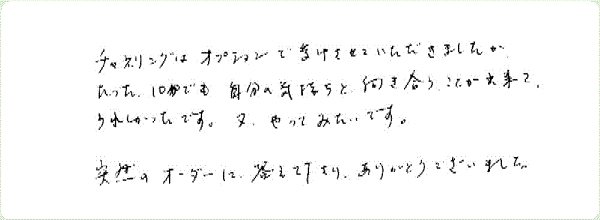 チャネリングは オプションで 受けさせていただきましたが、
たった 10分でも 自分の気持ちと、向き合う ことが出来て、
うれしかったです。 又、やって みたいです。
突然の オーダーに、答えて下さり、ありがとうございました。